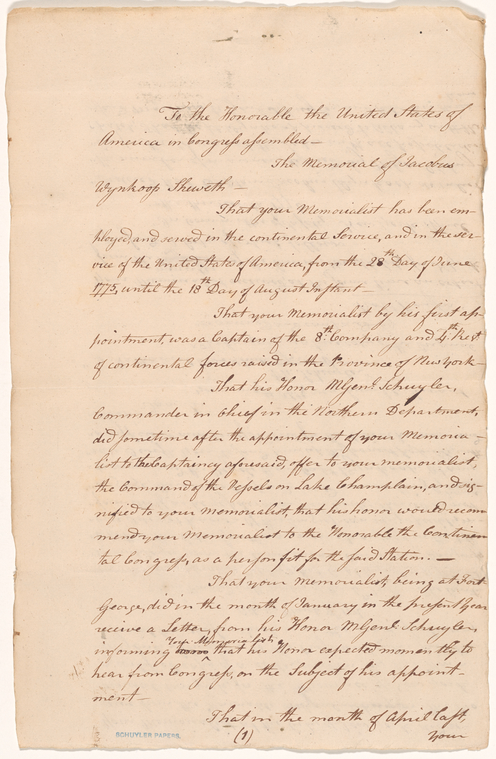 To the Honorable the United States of
America in Congress assembled —
The Memorial of Jacobus
Wynkoop Sheweth —
That your Memorialist has been em-
ployed, and served in the continental Service, and in the ser-
vice of the United States of America, from the 28th Day of June
1775, until the 18th Day of August Instant —
That your Memorialist by his first ap-
pointment, was a Captain of the 8th Company and 4th Regt
of continental forces raised in the Province of New York —
That his Honor MGenl. Schuyler,
Commander in Chief in the Northern Department,
did sometime after the appointment of your Memoria-
list to the Captaincy aforesaid, offer to your memorialist,
the Command of the Vessels on Lake Champlain, and sig-
nified to your Memorialist, that his honor would recom
mend your Memorialist to the Honorable the Continen
tal Congress, as a person fit for the said Station. —
That your Memorialist, being at Fort
George, did in the month of January in the present Year
receive a Letter, from his Honor MGenl. Schuyler,
Your Memorialist,
informing that his Honor expected momently to
hear from Congress, on the Subject of his appoint-
ment —
That in the month of April last,
(1) Your
SCHUYLER PAPERS